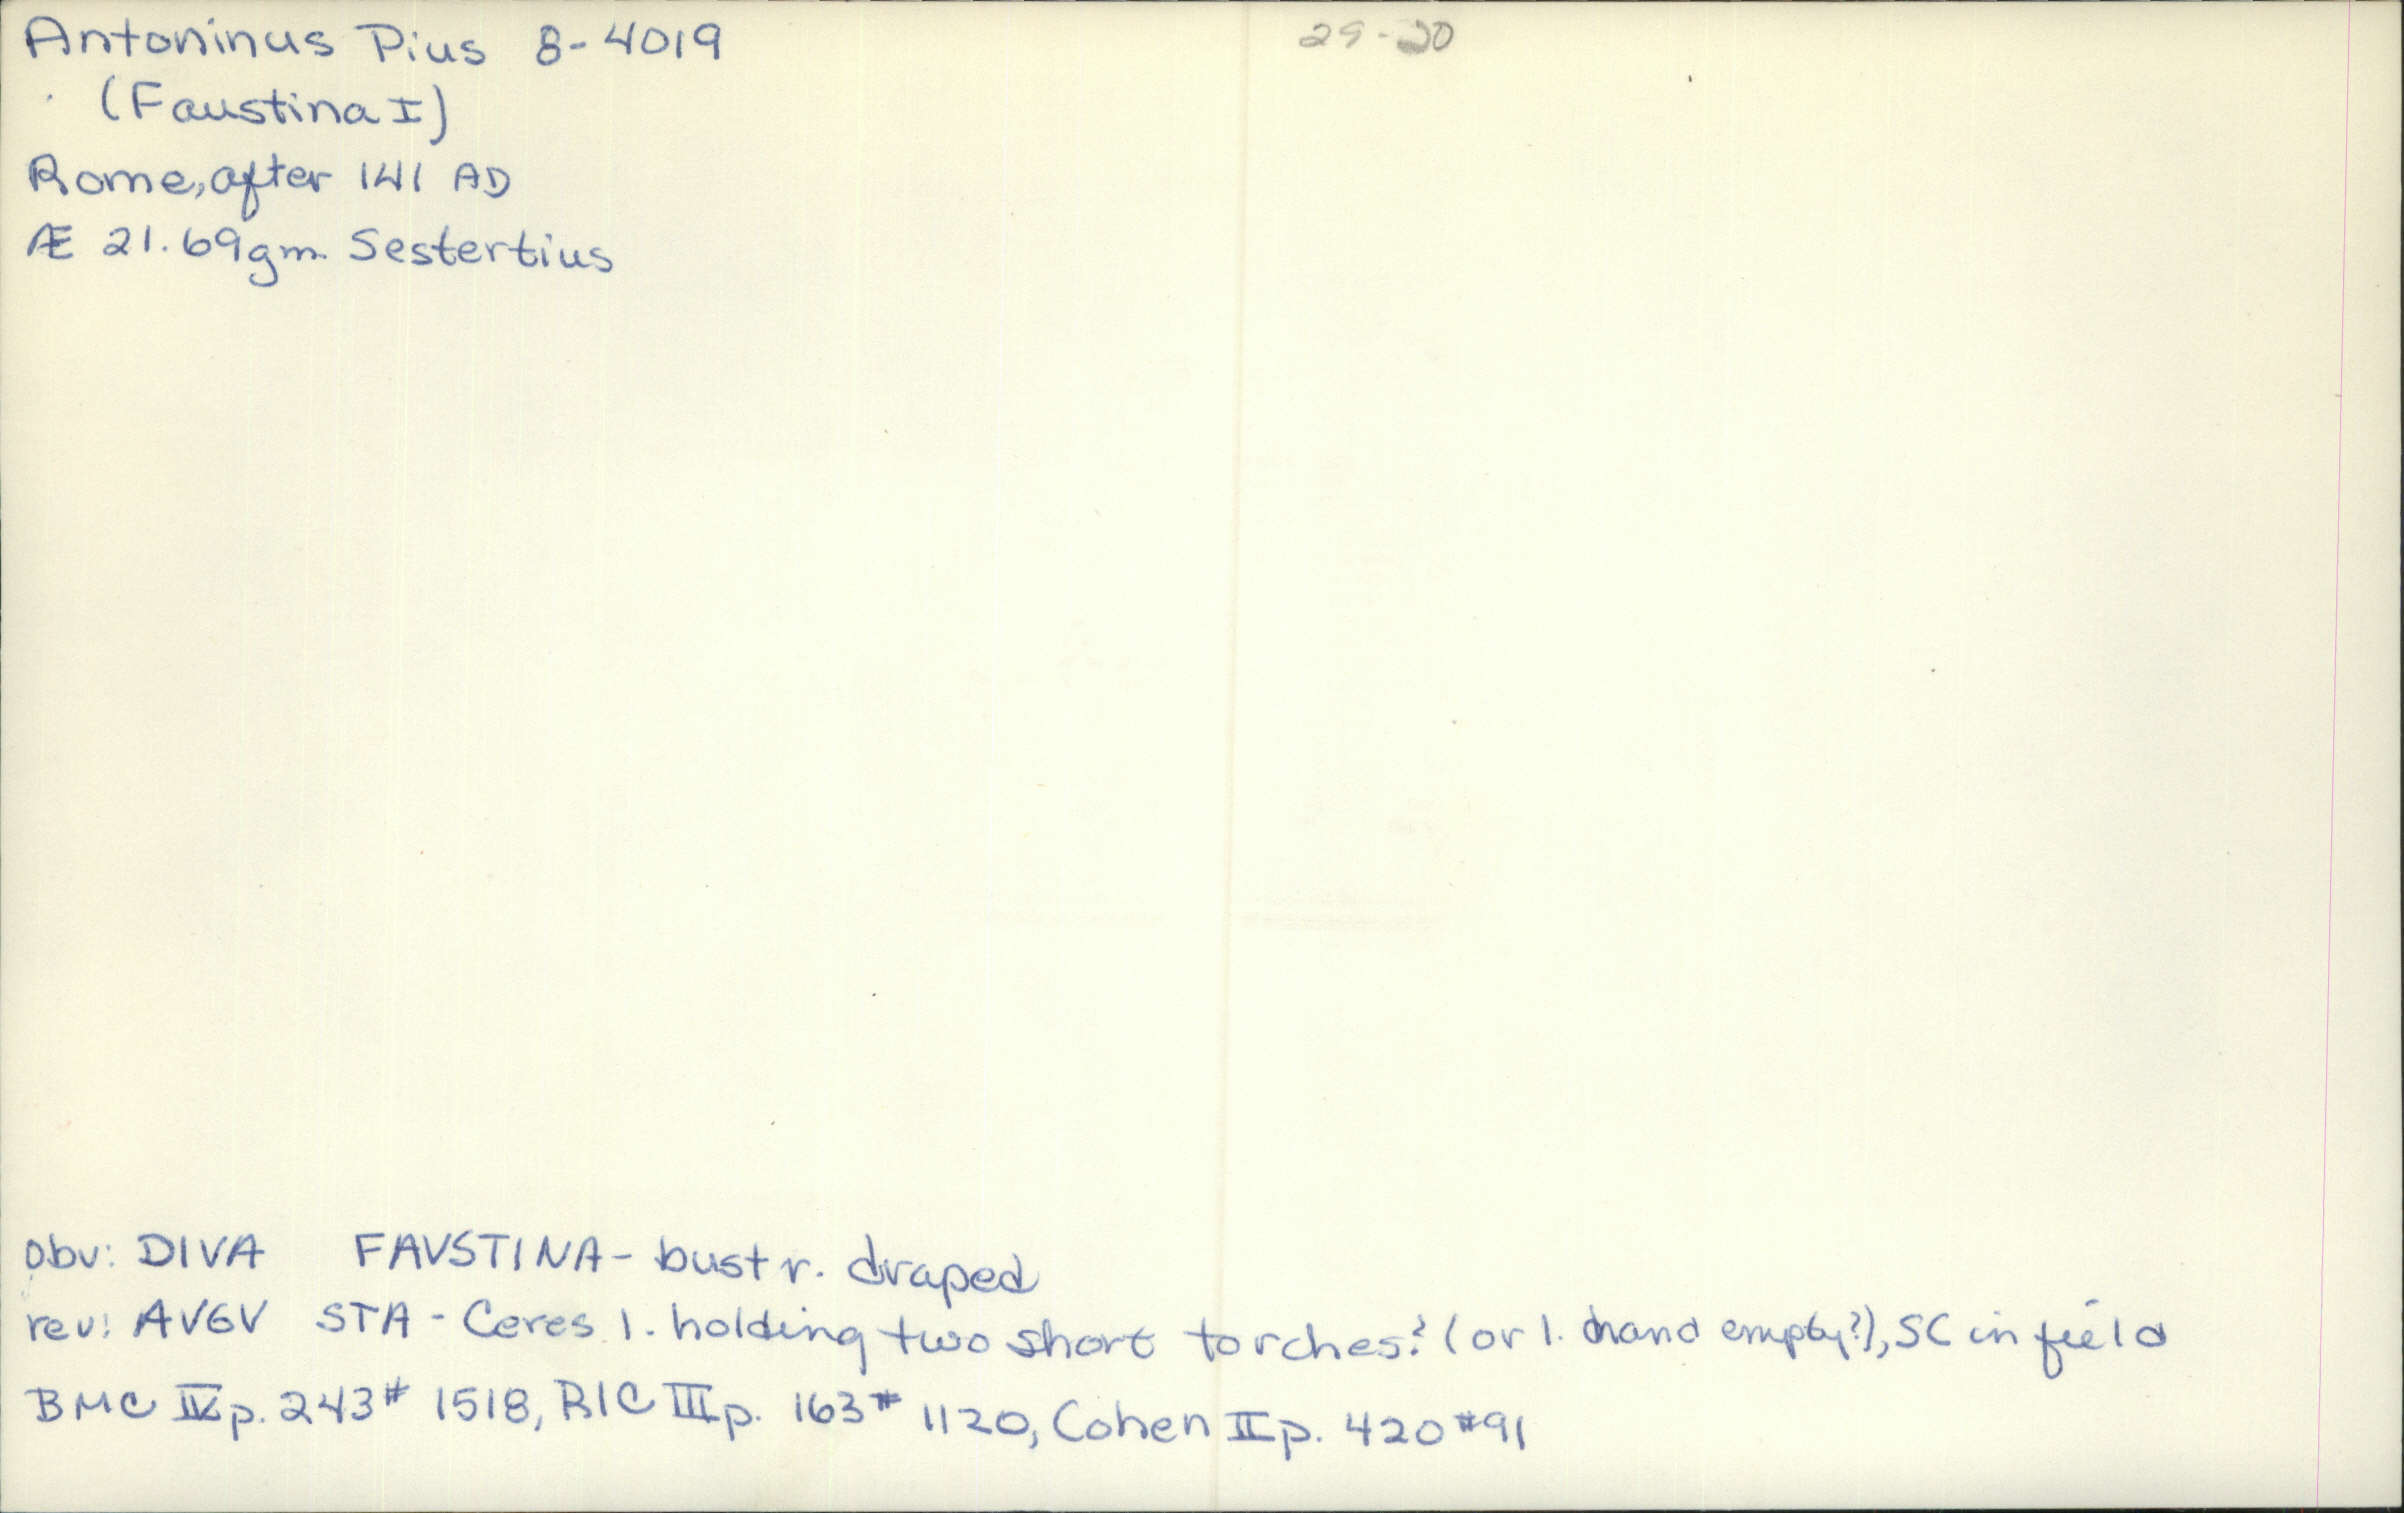 Antoninus Pius 8-4019
29-20
(Faustina I)
Rome, after 141 AD
Æ 21.69gm. Sestertius
obv: DIVA FAVSTINA - bust r. draped
rev: AVGV STA - Ceres l. holding two short torches? (or l. hand empty?), SC in field
BMC IV p. 243 # 1518, RIC III p. 163 # 1120, Cohen II p. 420 #91